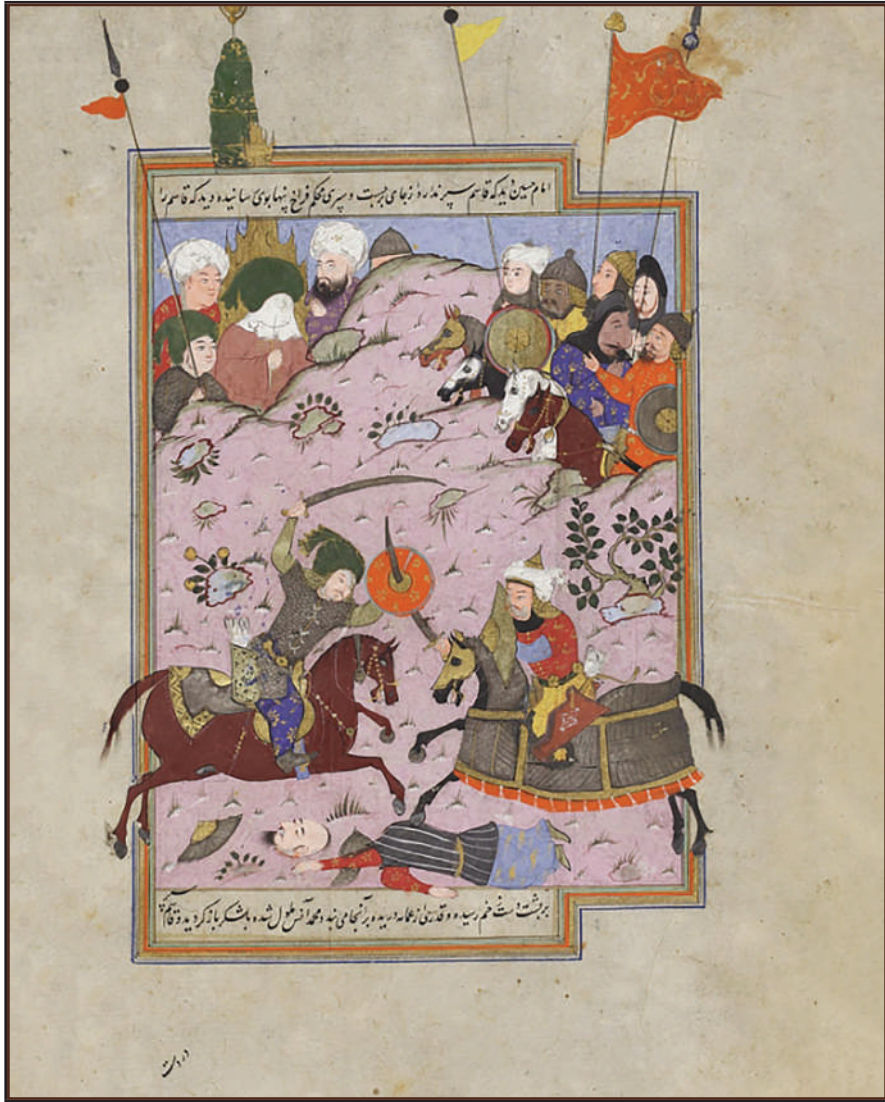 امام حسین دید که قاسم سپر ندارد از جای برجست و سپری محکم فراخ پنها بوی رسانیده دید که قاسم را
بر پشت دست زخم رسیده و قدری از عمامه دریده بر آنجا می بندد محمد انس ملول شده بلشکر باز کردید و قاسم